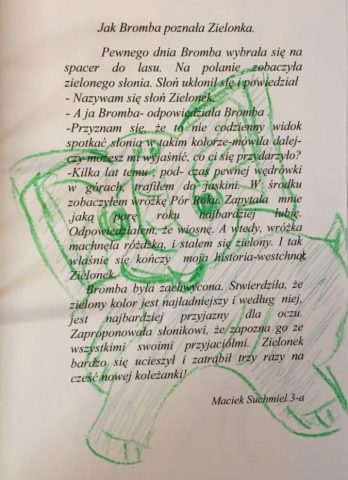 Jak Bromba poznała Zielonka.
Pewnego dnia Bromba wybrała się na
spacer do lasu. Na polanie zobaczyła
zielonego słonia. Słoń ukłonił się i powiedział
- Nazywam się słoń Zielonek.
- A ja Bromba- odpowiedziała Bromba .
-Przyznam się, że to nie codzienny widok
spotkać słonia w takim kolorze-mówiła dalej-
czy możesz mi wyjaśnić, co ci się przydarzyło?
-Kilka lat temu , pod- czas pewnej wędrówki
w górach, trafiłem do jaskini. W środku
zobaczyłem wróżkę Pór Roku. Zapytała mnie
jaką porę roku najbardziej lubię.
Odpowiedziałem, że wiosnę. A wtedy, wróżka
machnęła różdżką, i stałem się zielony. I tak
właśnie się kończy moja historia-westchnął
Zielonek.
Bromba była zachwycona. Stwierdziła, że
zielony kolor jest najładniejszy i według niej,
jest najbardziej przyjazny dla oczu.
Zaproponowała słonikowi, że zapozna go ze
wszystkimi swoimi przyjaciółmi. Zielonek
bardzo się ucieszył i zatrąbił trzy razy na
cześć nowej koleżanki!
Maciek Suchmiel.3-a